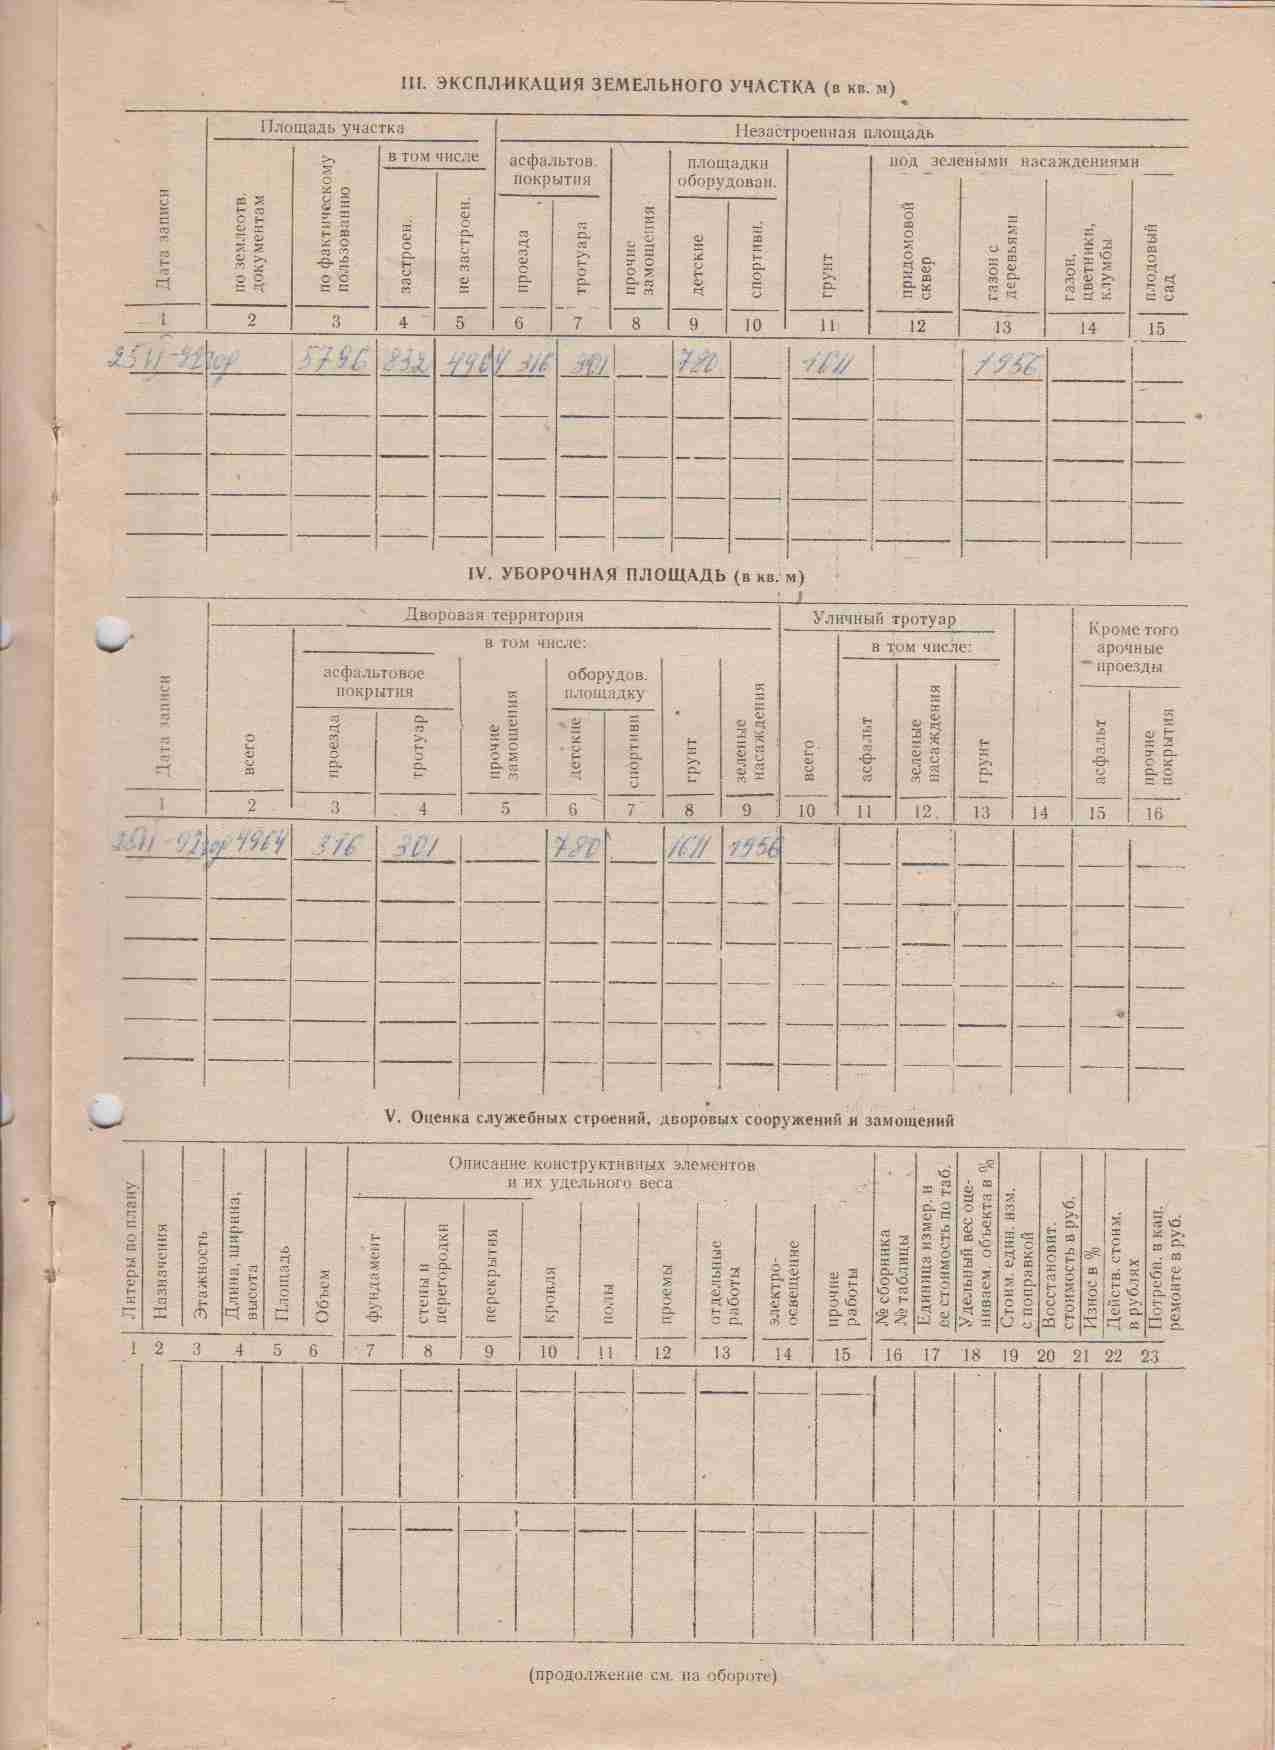 III. ЭКСПЛИКАЦИЯ ЗЕМЕЛЬНОГО УЧАСТКА (в кв. м)
Дата записи
Площадь участка
по землеотв. документам
по фактическому пользованию
в том числе
застроен.
не застроен.
Незастроенная площадь
асфальтов. покрытия
проезда
тротуара
прочие замощения
площадки оборудован.
детские
спортивн.
грунт
под зелеными насаждениями
придомовой сквер
газон с деревьями
газон, цветники, клумбы
плодовый сад
1 2 3 4 5 6 7 8 9 10 11 12 13 14 15
5796 832 4964 316 301 780 1611 1956
IV. УБОРОЧНАЯ ПЛОЩАДЬ (в кв. м)
Дата записи
Дворовая территория
всего
в том числе:
асфальтовое покрытия
проезда
тротуар
прочие замощения
оборудов. площадку
детские
спортивн
грунт
зеленые насаждения
Уличный тротуар
всего
в том числе:
асфальт
зеленые насаждения
грунт
Кроме того арочные проезды
асфальт
прочие покрытия
1 2 3 4 5 6 7 8 9 10 11 12 13 14 15 16
4964 316 301 780 1611 1956
V. Оценка служебных строений, дворовых сооружений и замощений
Литеры по плану
Назначения
Этажность
Длина, ширина, высота
Площадь
Объем
Описание конструктивных элементов
и их удельного веса
фундамент
стены и перегородки
перекрытия
кровля
полы
проемы
отдельные работы
электро-освещение
прочие работы
№ сборника № таблицы
Единица измер. и ее стоимость по таб.
Удельный вес оце-ниваем. объекта в %
Стоим. един. изм. с поправкой
Восстановит. стоимость в руб.
Износ в %
Действ. стоим. в рублях
Потребн. в кап. ремонте в руб.
1 2 3 4 5 6 7 8 9 10 11 12 13 14 15 16 17 18 19 20 21 22 23
(продолжение см. на обороте)